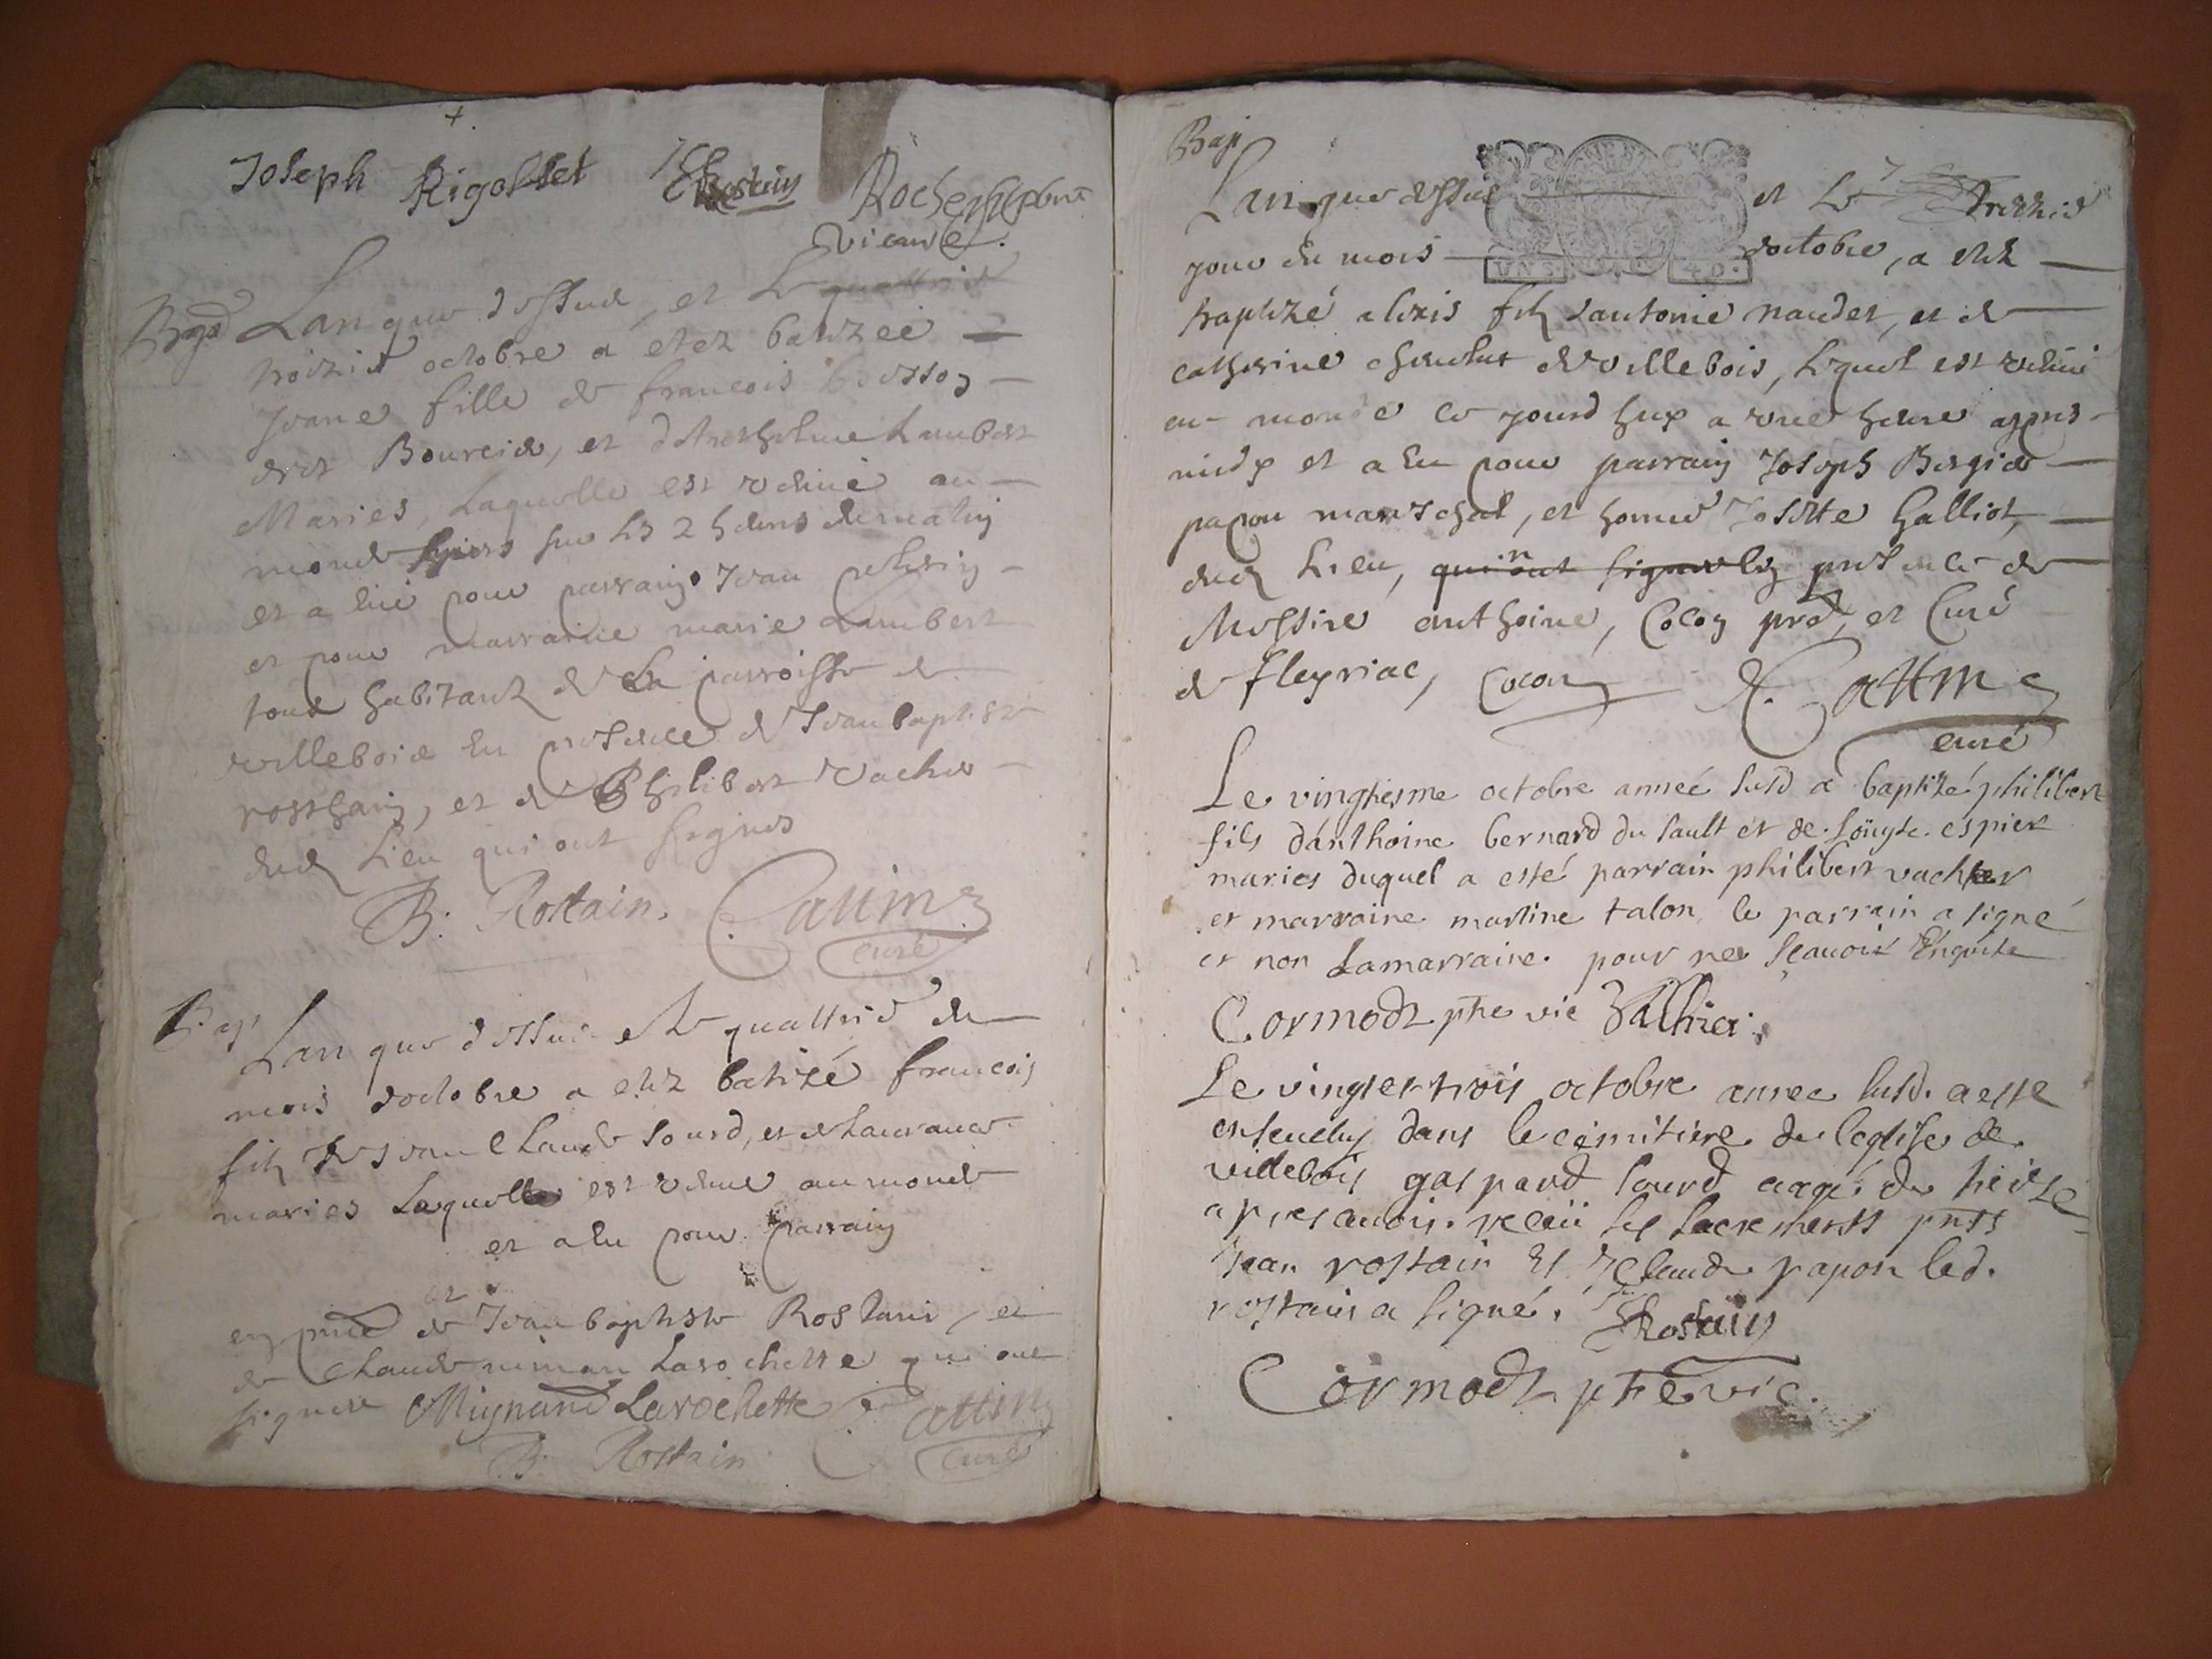 Joseph Rigollet Rostain Rochefort
vicaire.
Bap Lan que dessus, et le quattrie
troizie octobre a etez batizeé
Jeane fille de francois
dict Bourcie, et Lambert
Maries, Laquelle est venue au
monde hiers sur les 2 heures du matin
et a heu pour parrain Jean
et pour marraine marie Lambert
tous habitantz de La parroisse de
villebois en presence de Jean baptiste
rosthain, et de Philibert Vachie
dud lieu qui ont signes
B: Rostain. Cattin
curé
Bap
Lan que dessus et le quattrie du
mois doctobre a etez batizé francois
filz de Jean Claude sourd, et de Laurance
maries Laquelle est venue au monde
et a hu pour parrain
et
en pnce de Jean baptiste Rostain, et
de Claude minan Larochette qui ont
signere Mignand Larochette Cattin
B: Rostain curé
Bap
Lan que dessus et le trezzie
VNS. 4D.
jour du mois doctobre, a etez
baptizé alexis filz dantonie naudet, et de
catherine de villebois, lequel est venu
au monde ce jourdhuy a une heure apres
midy et a hu pour parrain Joseph Bergier
papon mareschal, et honne Josette Galliot,
dud Lieu, qui n'ont signes en presence de
Messire anthoine, Cocon pred, et Curé
de fleyriac, Cocon Cattin
curé
Le vingtiesme octobre anneé susd a baptizé philibert
fils danthoine bernard du sault et de espier
maries duquel a esté parrain philibert vachier
et marraine martine talon le parrain a signé
et non Lamarraine. pour ne sçauoir Enquise
Cormodz ptre vic Vachier
Le vingtet trois octobre annee susd. a este
enseuely dans le cemitiere de leglise de
villebois gaspard sourd aagé de treize
apres auoir receü les sacrements pnts
Jean rostain Et Claude papon led.
rostain a signé. Rostain
Cormodz ptre vic.